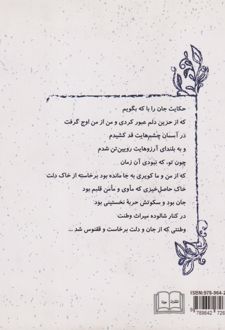 حکایت جان را با که بگویم
که از حزین دلم عبور کردی و من از من اوج گرفت
در آسمان چشم‌هایت قد کشیدم
و به بلندای آرزوهایت رویین‌تن شدم
چون تو، که نبودی آن زمان
که از من و ما کویری به جا مانده بود برخاسته از خاک دلت
خاک حاصل‌خیزی که مأوی و مأمن قلبم بود
جان بود و سکوتش حربهٔ نخستینی بود
در کنار شالوده میراث وطنت
وطنتی که از جان و دلت برخاست و ققنوس شد ...
ISBN:978-964-2
9 789642 726